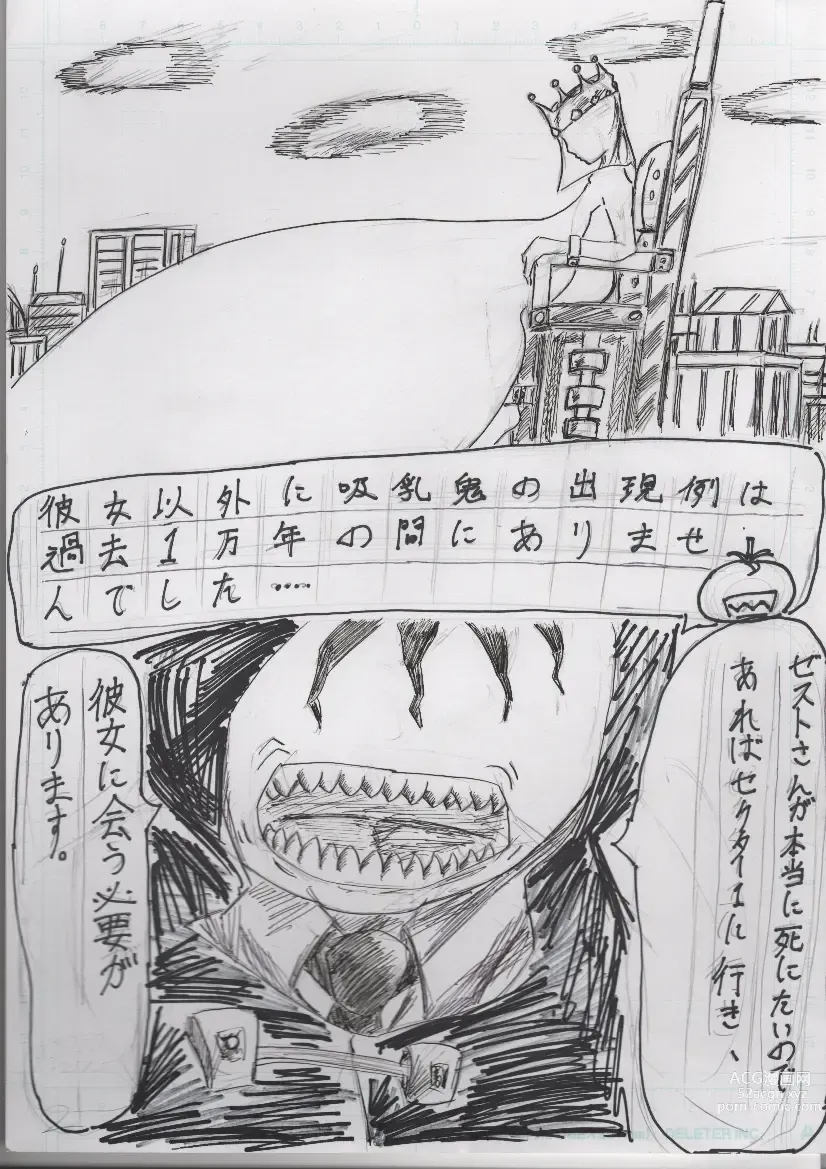 彼女以外に吸乳鬼の出現例は
過去1万年の間にありませ
んでした……
ゼストさんが本当に死にたいので
あればセクター1に行き、
彼女に会う必要が
あります。
ACG漫画网
52acgn.xyz
porn-comic.com
DELETER INC.